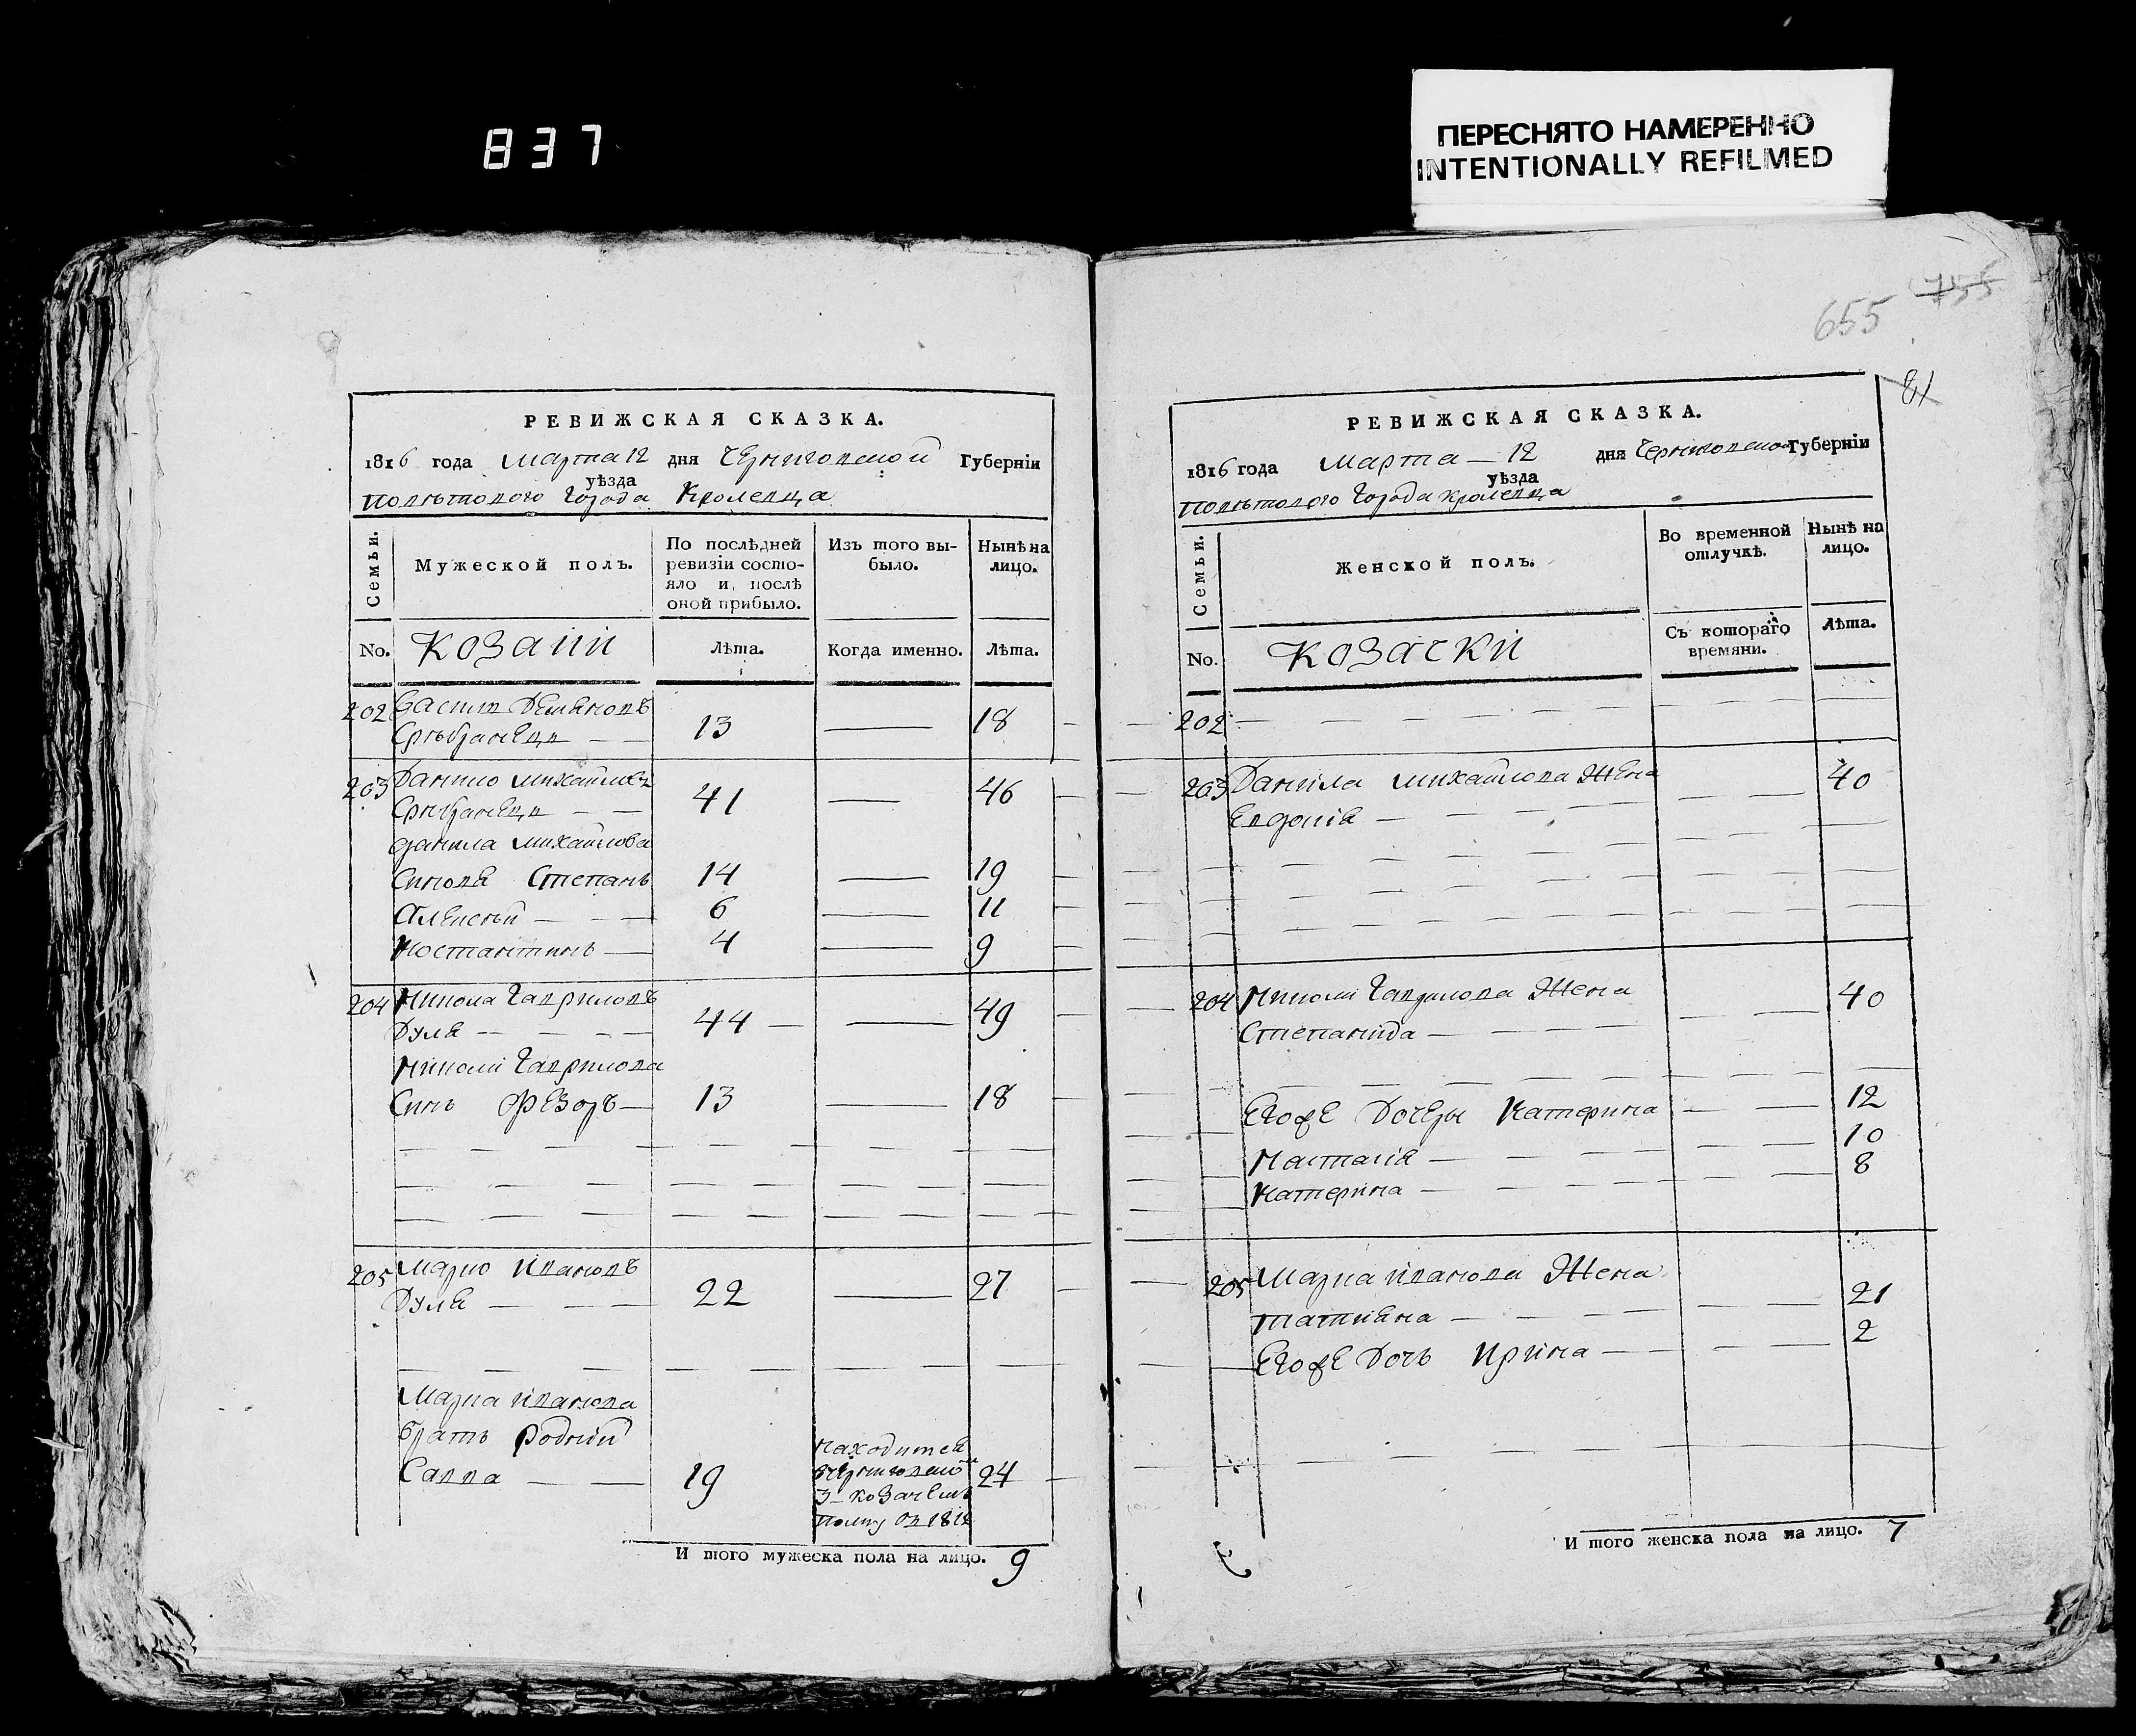 837
ПЕРЕСНЯТО НАМЕРЕННО
INTENTIONALLY REFILMED
655 755
81
РЕВИЖСКАЯ СКАЗКА.
1816 года Марта 12 дня Черниговской Губерніи
уѣзда
Повѣтового Города Кролевца
Семьи.
Мужеской полъ.
По послѣдней
ревизіи состо-
яло и, послѣ
оной прибыло.
Изъ того вы-
было.
Нынѣ на
лицо.
No. Козаки Лѣта. Когда именно. Лѣта.
202 Демяновъ
13 18
203 Данило Михайловъ
41 46
Данила Михайлова
Синовя Степанъ 14 19
Алексѣй 6 11
Костантинъ 4 9
204 Никола Гавриловъ
Дуля 44 49
Николи Гаврилова
Синъ Феѕоръ 13 18
205 Марко Ивановъ
Дуля 22 27
Марка Иванова
братъ родній
Савва 19 24
находится
Черниговско
3 козачемъ
полку 1812
И того мужеска пола на лицо. 9
РЕВИЖСКАЯ СКАЗКА.
1816 года Марта 12 дня Черниговской Губерніи
уѣзда
Повѣтового Города Кролевца
Семьи.
Женской полъ.
Во временной
отлучкѣ.
Нынѣ на
лицо.
No. Козачки Съ котораго
времяни. Лѣта.
202
203 Данила Михайлова Жена 40
Евдокія
204 Николи Гаврилова Жена 40
Степанида
Егоже Дочери Катерина 12
Настасія 10
Катерина 8
205 Марка Иванова Жена
Татияна 21
Егоже Дочь Ирина 2
И того женска пола на лицо. 7